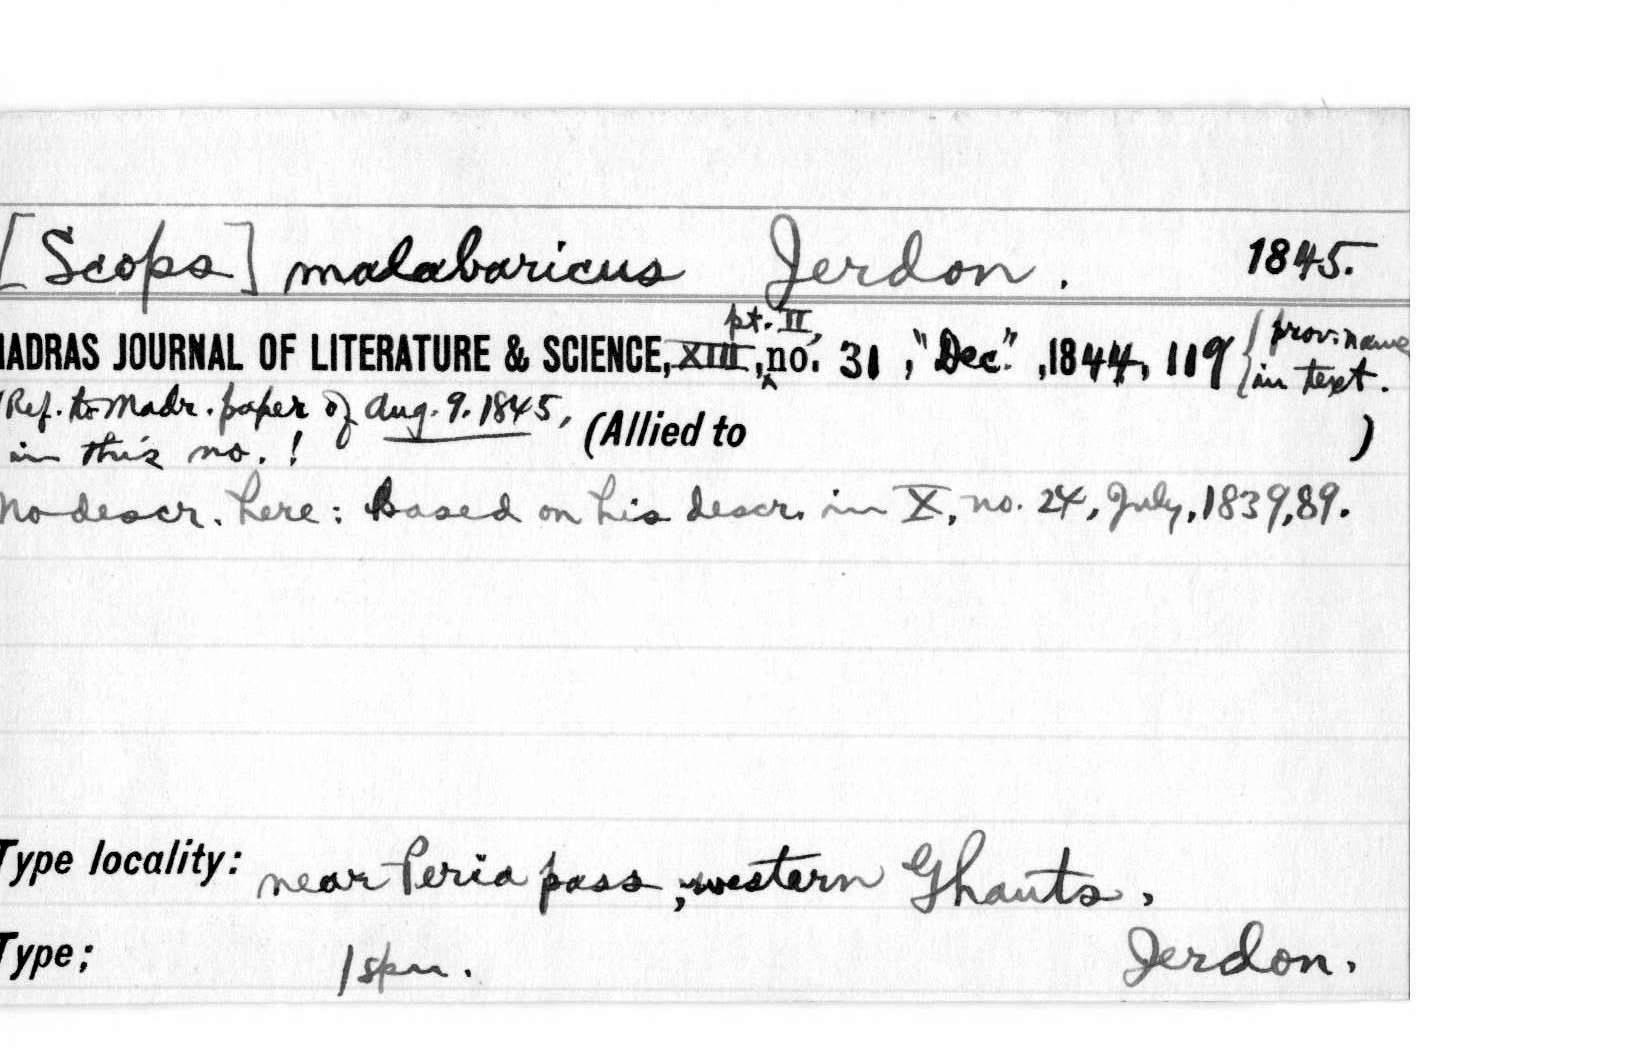 [Scops] malabaricus Jerdon. 1845.
pt. II,
MADRAS JOURNAL OF LITERATURE & SCIENCE, XIII, no. 31, "Dec.", 1844, 119 { prov. name
in text.
(Ref. to Madr. paper of Aug. 9. 1845,
in this no. ! (Allied to )
No descr. here: based on his descr. in X, no. 24, July, 1839, 89.
Type locality: near Peria pass, western Ghauts,
Jerdon.
Type; 1 spm.